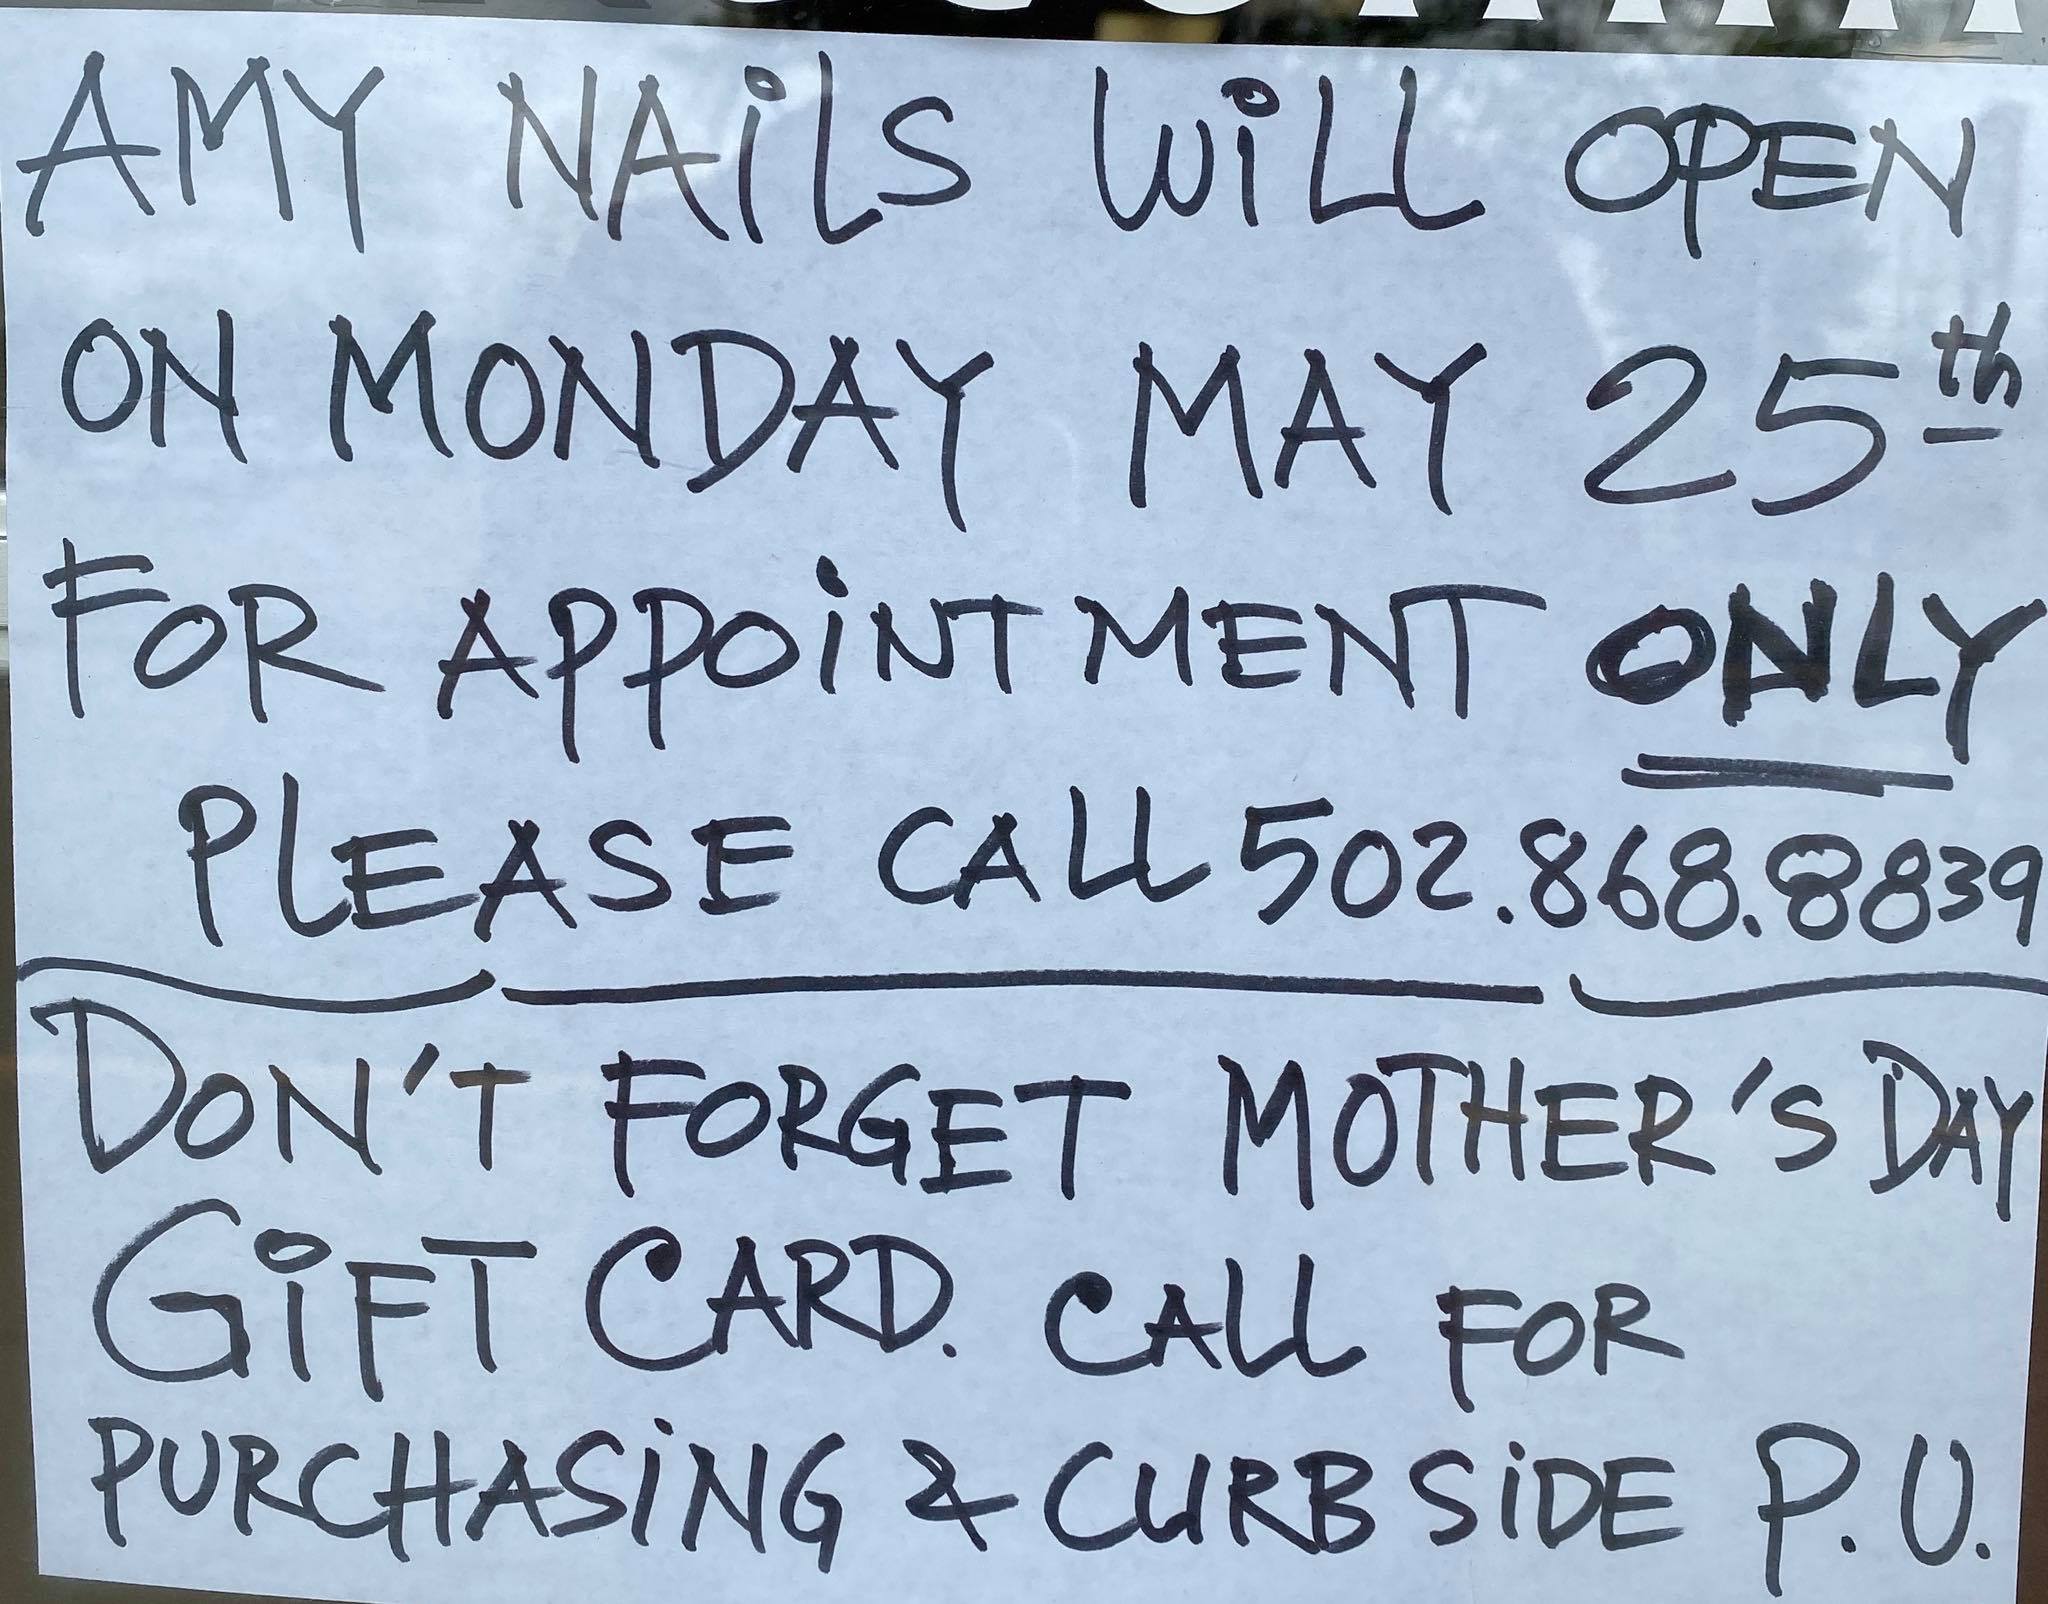 AMY NAiLS WiLL OPEN
ON MONDAY MAY 25th
FOR APPOiNTMENT ONLY
PLEASE CALL 502.868.8839
DON'T FORGET MOTHER'S DAY
GiFT CARD. CALL FOR
PURCHASiNG & CURBSiDE P.U.